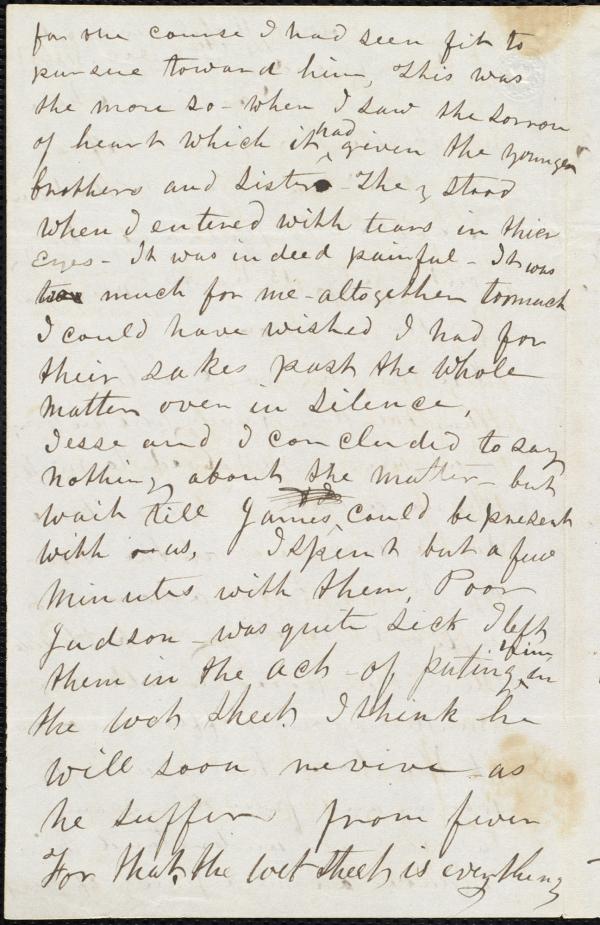 for the course I had seen fit to
pursue toward him, This was
the more so - when I saw the sorrow
of heart which it had given the younger
brothers and Sisters - They stood
when I entered with tears in thier
Eyes - It was indeed painful - It was
much for me - altogether too much
I could have wished I had for
their sakes past the whole
matter over in silence,
Jesse and I concluded to say
nothing, about the matter - but
wait till James, could be present
with us, - I spent but a few
minutes with them, Poor
Judson - was quite sick I left
them in the act - of puting him in
the wet sheet. I think he
will soon revive - as
he suffers from fever
For that, the wet sheet is everything